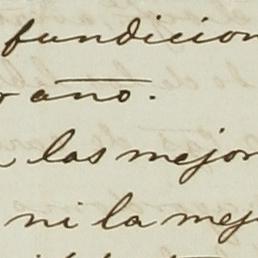 fundicion
ano.
las mejor
ni la mej